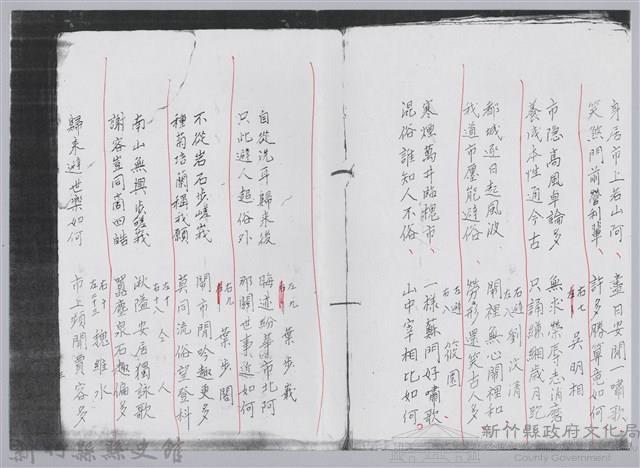 身居市上若山阿、盡日安閒一嘯歌
笑煞門前營利輩、許多勝算竟如何
右七 吳明相
左
市隱高風卓論多 無求榮辱志消磨
養成本性通今古 只誦縹緗歲月跎
右避 劉汶清
左八
都城逐日起風波 鬧裡無心閙裡和
我道市塵能避俗 勞形還笑古人多
左避 筱園
右八
寒煙萬井臨槐市、一樣蘇門好嘯歌
混俗誰知人不俗、山中宰相比如何。
左九 葉步莪
右
自從洗耳歸來後 晦迹紛華市北阿
只此避人超俗外 那關世事近如何
右九 葉步閣
左
不從岩石步嵯峩 鬧市閒吟趣更多
種菊培蘭稱我願 莫同流俗望登科
左十 仝人
右十八
南山無興步嵯峩 湫隘安居獨詠歌
謝容豈同商四皓 囂塵泉石趣偏多
右十 槐維水
左二十五
歸來避世樂如何 市上頭閒賈容多
新竹縣縣史館
新竹縣政府文化局
County Government